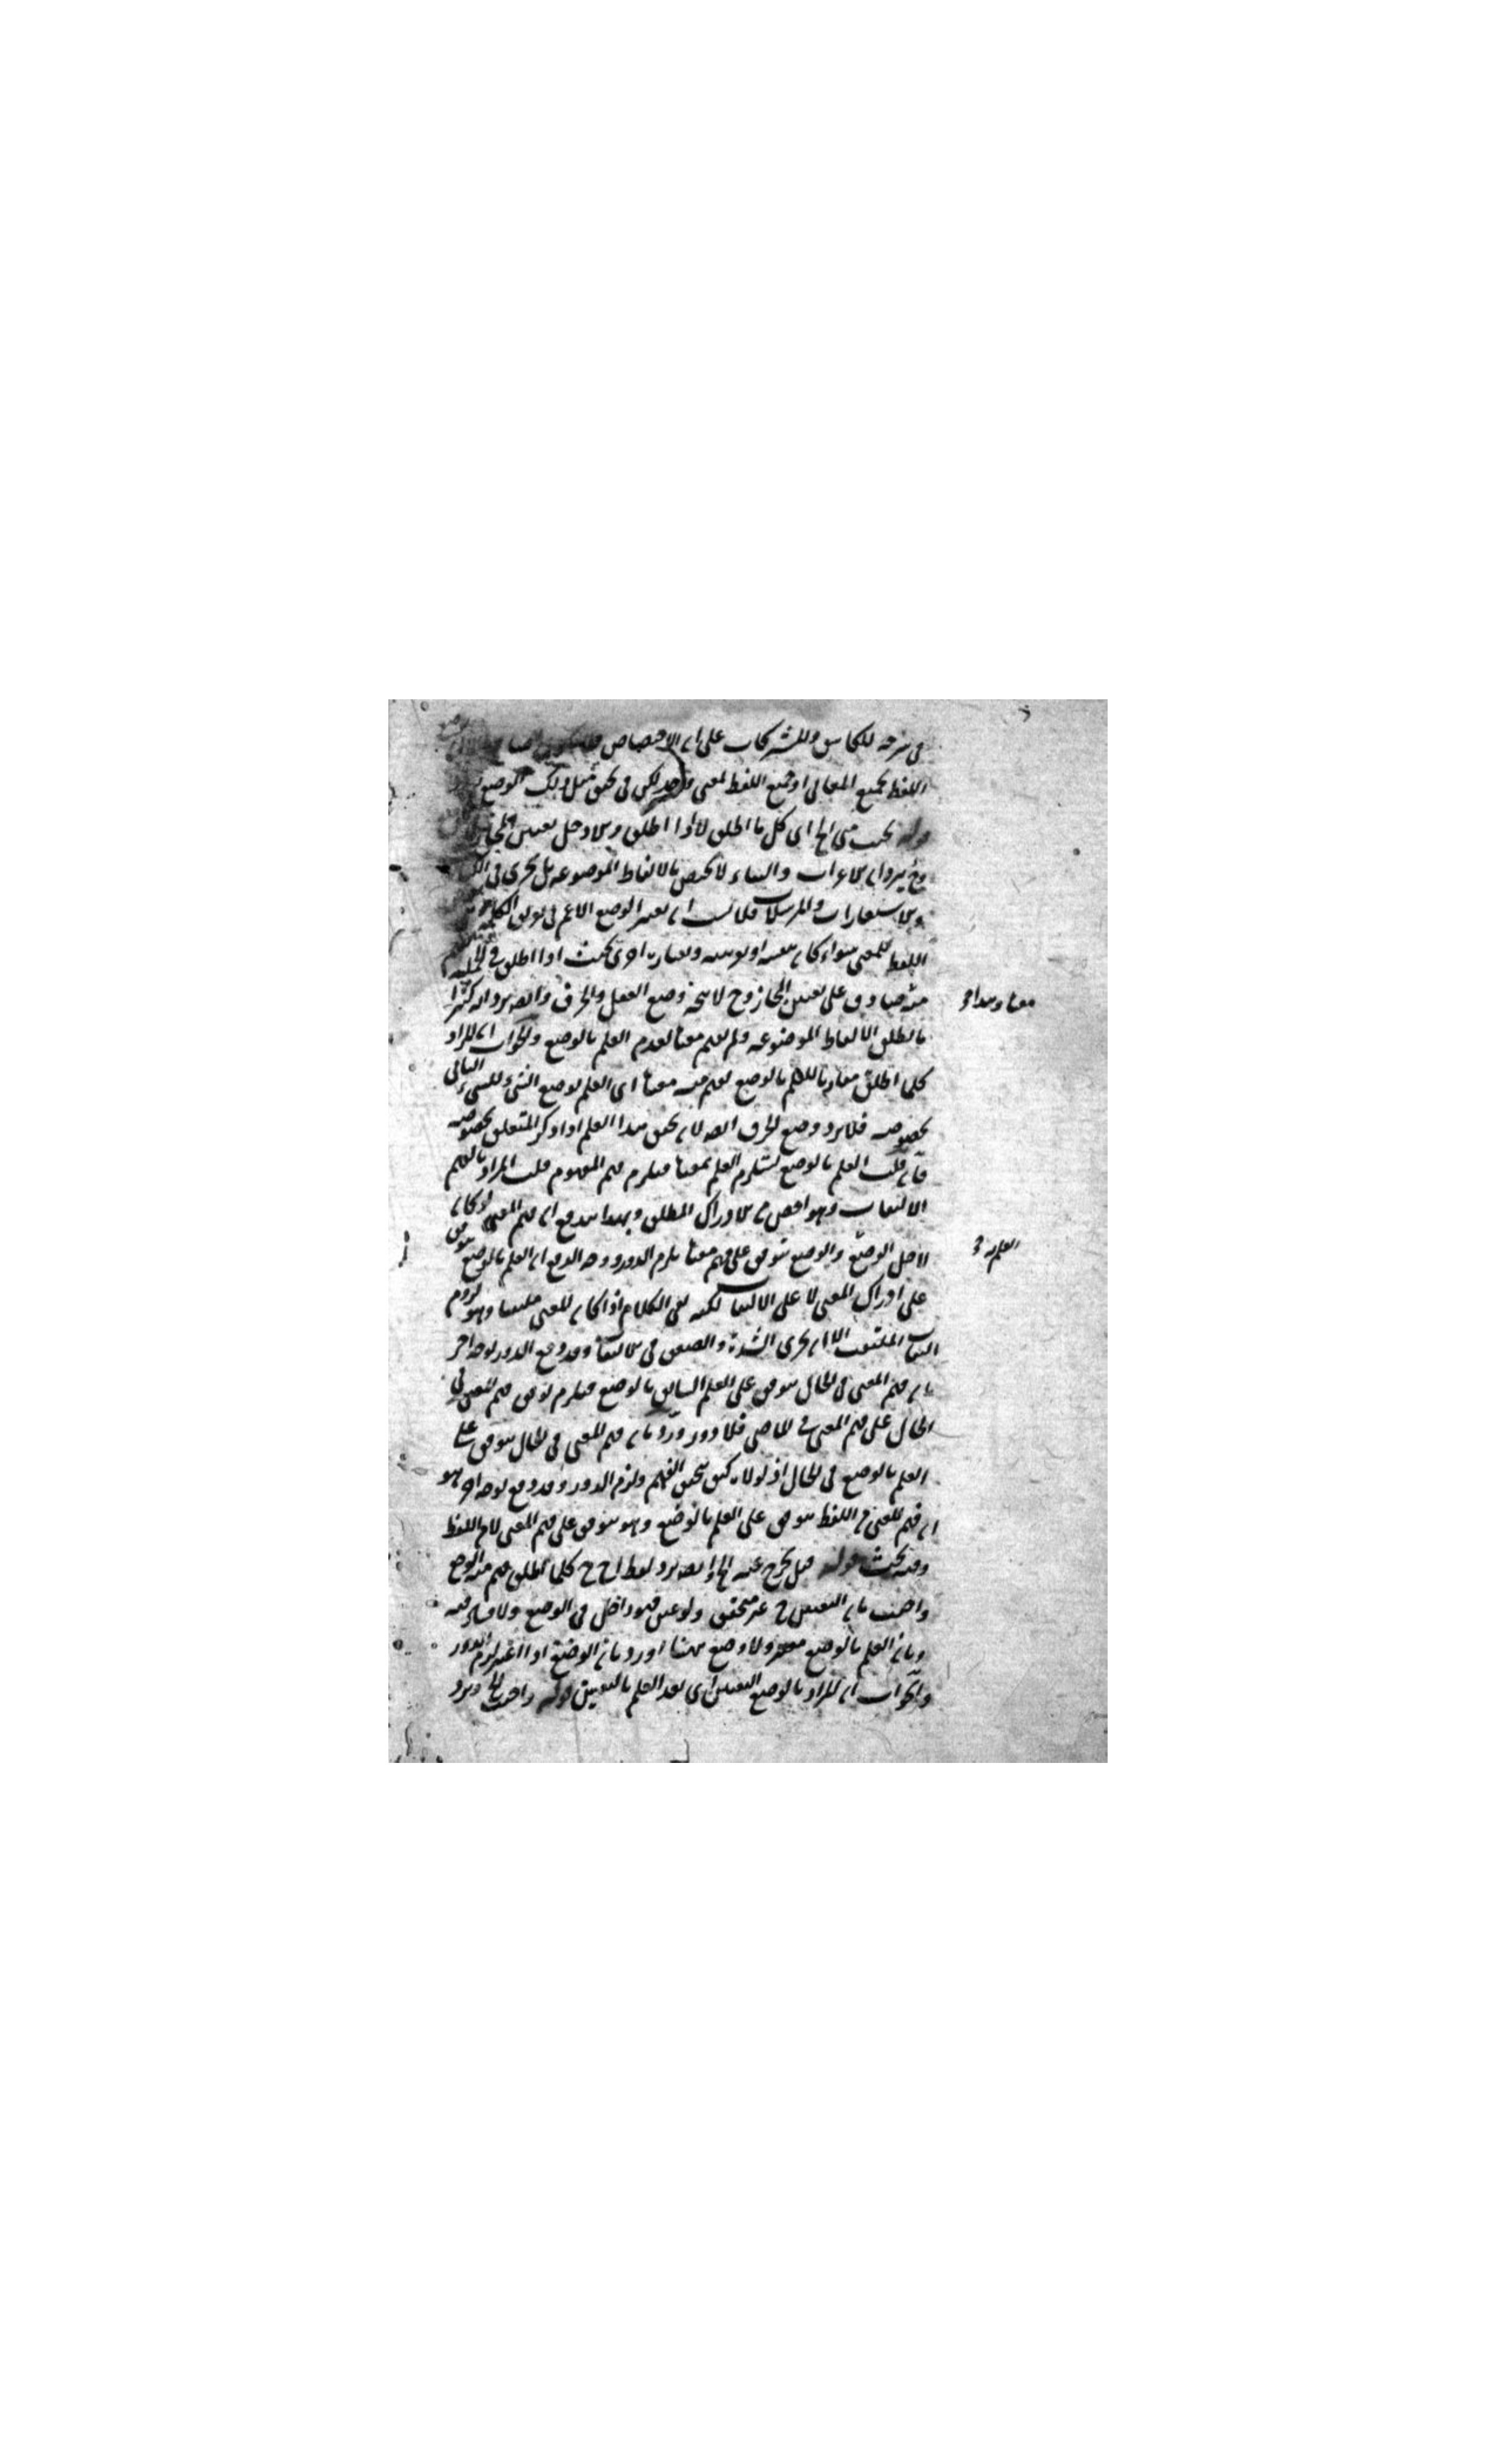 في شرحه للكافية والمشتركات على ان الاختصاص
اللفظ لجميع المعاني او جميع اللفظ لمعنى واحد لكن في تحقق مثل ذلك الوضع
قوله بحيث متى الخ اى كل ما اطلق لا اذا اطلق والا دخل تعيين المجاز
وح يرد ان الاعراب والبناء لا يختص بالالفاظ الموضوعة بل يجرى في
والاستعارات والمرسلات قلنا يعتبر الوضع الاعم في تعريف الكلمة
اللفظ للمعنى سواء كان بنفسه او بقرينة وبعبارة اخرى بحيث اذا اطلق في الجملة
منه صادق على تعيين المجاز وح لا يتجه وضع الفعل والحرف وايضا يرد انه كثيرا
ما يطلق الالفاظ الموضوعة ولم يفهم معناه لعدم العلم بالوضع والجواب ان المراد
كلما اطلق مقارنا للعلم بالوضع يفهم منه معناه اى العلم بوضع الشئ للشئ الثاني
بخصوصه فلا يرد وضع الحرف ايضا لان تحقق هذا العلم اذا ذكر المتعلق بخصوصه
فان قلت العلم بالوضع يستلزم العلم بمعناه فيلزم فهم المفهوم قلت المراد بالفهم
الالتفات وهو اخص من الادراك المطلق وبهذا يندفع ان فهم المعنى لو كان
لاجل الوضع والوضع يتوقف على فهم معناه يلزم الدور ووجه الدفع ان العلم بالوضع يتوقف
على ادراك المعنى لا على الالتفات لكنه بقى الكلام اذا كان المعنى ملتفتا وهو لزوم
التفات الملتفت الا ان يجرى الشدة والضعف في الالتفات وقد دفع الدور بوجه اخر
بان فهم المعنى في الحال يتوقف على العلم السابق بالوضع فيلزم توقف فهم المعنى في
الحال على فهم المعنى في الماضى فلا دور ورد بان فهم المعنى في الحال يتوقف على
العلم بالوضع في الحال اذ لولاه كيف يتحقق الفهم ولزم الدور وقد دفع بوجه اخر هو
ان فهم المعنى من اللفظ يتوقف على العلم بالوضع وهو يتوقف على فهم المعنى لا من اللفظ
وفيه بحث قوله قيل يخرج عنه الخ وايضا يرد لفظ اح اح كلما اطلق فهم منه الوجع
واجيب بان التعيين ح غير متحقق ولو عين فهو داخل في الوضع ولا فساد فيه
وبان العلم بالوضع معتبر ولا وضع ههنا اورد بان الوضع اذا اعتبر لزم الدور
والجواب ان المراد بالوضع التعيين اى بعد العلم بالتعيين قوله واجيب الخ ويرد
معناه وهذا
العلم به